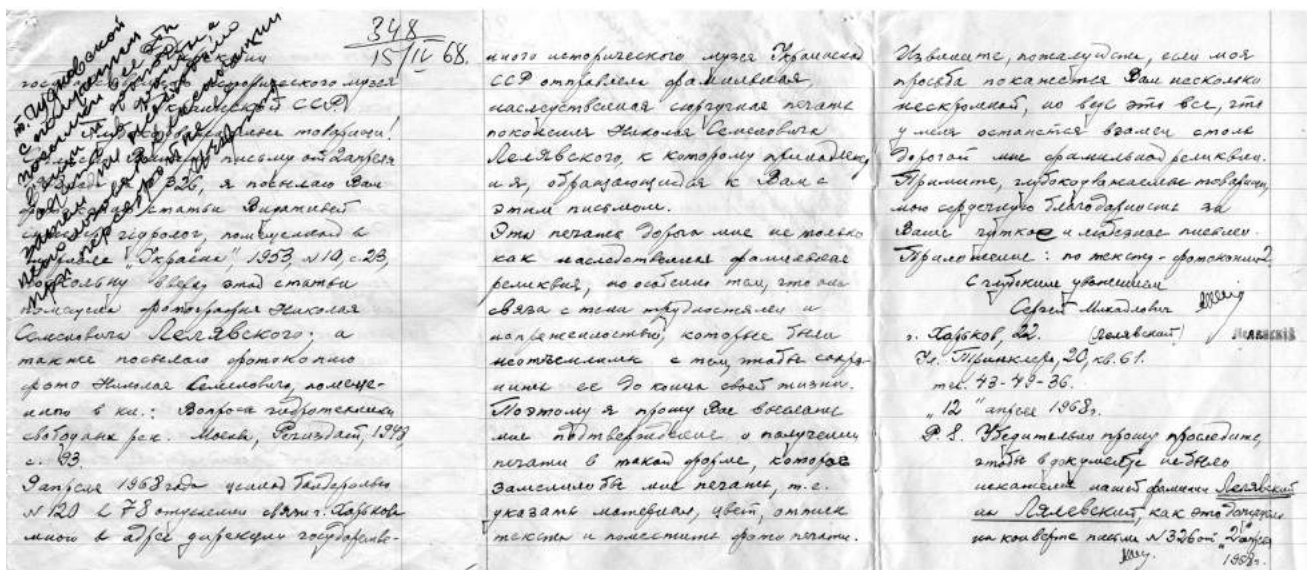 348
15/IV 68.
государственного исторического музея
Украинской ССР
Глубокоуважаемые товарищи!
письму от 2 апреля
326, я посылаю Вам
статьи Видатний
гідролог, помещенной в
"Україна", 1953, N 10, с. 23,
вверху этой статьи
помещена фотография Николая
Семеновича Лелявского; а
также посылаю фотокопию
фото Николая Семеновича, помеще-
нного в кн.: Вопросы гидротехники
свободных рек. Москва, Речиздат, 1948,
с. 93.
9 апреля 1968 года ценной бандеролью
N 120 с 78 отделения связи г. Харькова
мною в адрес дирекции государстве-
нного исторического музея Украинской
ССР отправлена фамильная,
наследственная сюргучная печать
поколения Николая Семеновича
Лелявского, к которому принадлежу
и я, обращающийся к Вам с
этим письмом.
Эта печать дорога мне не только
как наследственная фамильная
реликвия, но особенно тем, что она
связана с теми трудностями и
напряженностью, которые были
неотъемлемы с тем, чтобы сохра-
нить ее до конца своей жизни.
Поэтому я прошу Вас выслать
мне подтверждение о получении
печати в такой форме, которое
заменило бы мне печать, т.е.
указать материал, цвет, оттиск
текста и поместить фото печати.
Извините, пожалуйста, если моя
просьба покажется Вам несколько
нескромной, но ведь это все, что
у меня останется взамен столь
дорогой мне фамильной реликвии.
Примите, глубокоуважаемые товарищи,
мою сердечную благодарность за
Ваше чуткое и любезное письмо.
Приложение: по тексту - фотокопии 2
С глубоким уважением
Сергей Михайлович
г. Харьков, 22. (Лелявский)
Ул. Тринклера, 20, кв. 61.
тел. 43-49-36.
"12" апреля 1968 г.
P.S. Убедительно прошу проследить,
чтобы в документе не было
искажения нашей фамилии Лелявский
на Лялевский, как это допущено
на конверте письма N 326 от "2" апреля
1968 г.